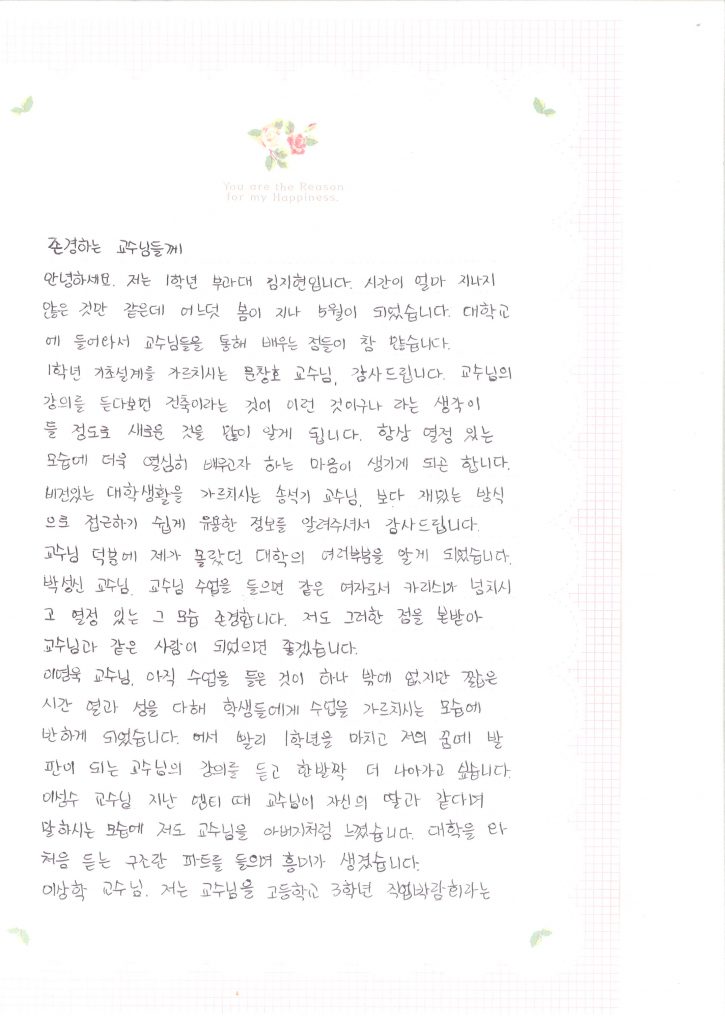 You are the Reason
for my Happiness.
존경하는 교수님들께
안녕하세요. 저는 1학년 부과대 김지현입니다. 시간이 얼마 지나지
않은 것만 같은데 어느덧 봄이 지나 5월이 되었습니다. 대학교
에 들어와서 교수님들을 통해 배우는 점들이 참 많습니다.
1학년 기초설계를 가르치시는 문창호 교수님, 감사드립니다. 교수님의
강의를 듣다보면 건축이라는 것이 이런 것이구나 라는 생각이
들 정도로 새로운 것을 많이 알게 됩니다. 항상 열정 있는
모습에 더욱 열심히 배우고자 하는 마음이 생기게 되곤 합니다.
비전있는 대학생활을 가르치시는 송석기 교수님, 보다 재밌는 방식
으로 접근하기 쉽게 유용한 정보를 알려주셔서 감사드립니다.
교수님 덕분에 제가 몰랐던 대학의 여러부분을 알게 되었습니다.
박성신 교수님. 교수님 수업을 들으면 같은 여자로서 카리스마 넘치시
고 열정 있는 그 모습 존경합니다. 저도 그러한 점을 본받아
교수님과 같은 사람이 되었으면 좋겠습니다.
이영욱 교수님, 아직 수업을 들은 것이 하나 밖에 없지만 짧은
시간 열과 성을 다해 학생들에게 수업을 가르치시는 모습에
반하게 되었습니다. 어서 빨리 1학년을 마치고 저의 꿈에 발
판이 되는 교수님의 강의를 듣고 한발짝 더 나아가고 싶습니다.
이선수 교수님 지난 엠티 때 교수님이 자신의 딸과 같다며
말하시는 모습에 저도 교수님을 아버지처럼 느꼈습니다. 대학을 와
처음 듣는 구조란 파트를 들으며 흥미가 생겼습니다.
이상학 교수님. 저는 교수님을 고등학교 3학년 직업박람회라는